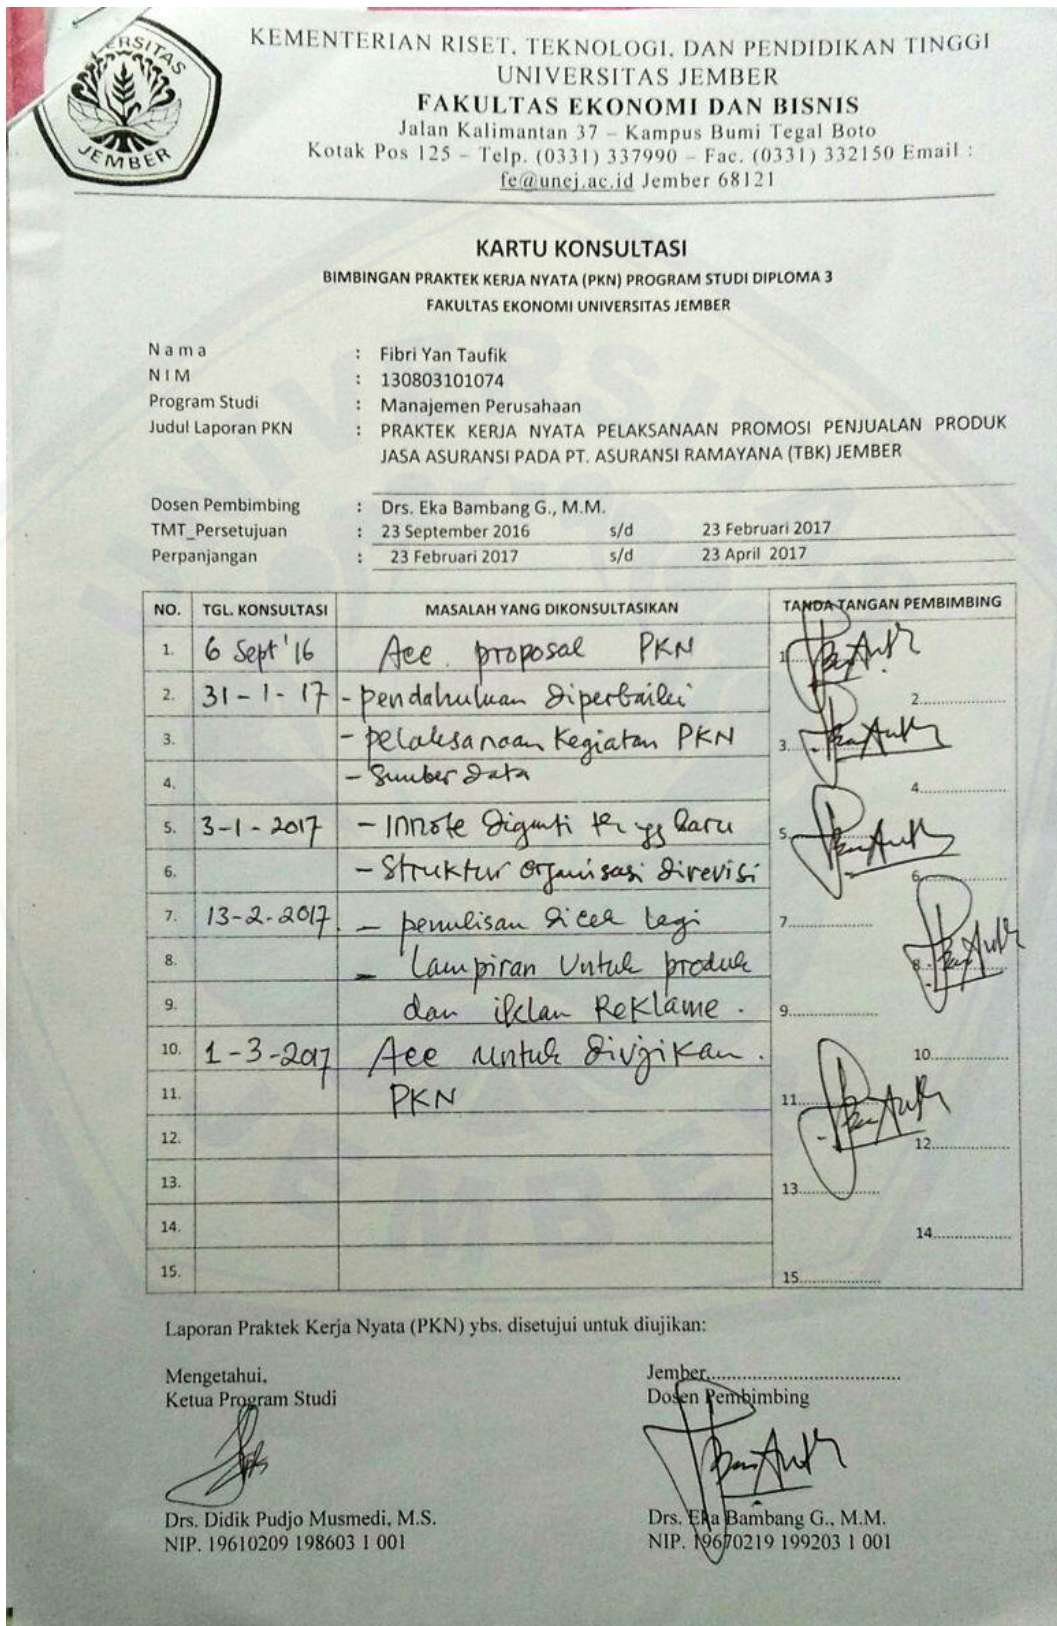 UNIVERSITAS
JEMBER
KEMENTERIAN RISET, TEKNOLOGI, DAN PENDIDIKAN TINGGI
UNIVERSITAS JEMBER
FAKULTAS EKONOMI DAN BISNIS
Jalan Kalimantan 37 – Kampus Bumi Tegal Boto
Kotak Pos 125 – Telp. (0331) 337990 – Fac. (0331) 332150 Email :
fe@unej.ac.id Jember 68121
KARTU KONSULTASI
BIMBINGAN PRAKTEK KERJA NYATA (PKN) PROGRAM STUDI DIPLOMA 3
FAKULTAS EKONOMI UNIVERSITAS JEMBER
Nama : Fibri Yan Taufik
NIM : 130803101074
Program Studi : Manajemen Perusahaan
Judul Laporan PKN : PRAKTEK KERJA NYATA PELAKSANAAN PROMOSI PENJUALAN PRODUK
JASA ASURANSI PADA PT. ASURANSI RAMAYANA (TBK) JEMBER
Dosen Pembimbing : Drs. Eka Bambang G., M.M.
TMT_Persetujuan : 23 September 2016 s/d 23 Februari 2017
Perpanjangan : 23 Februari 2017 s/d 23 April 2017
NO. TGL. KONSULTASI MASALAH YANG DIKONSULTASIKAN TANDA TANGAN PEMBIMBING
1. 6 Sept '16 Acc. proposal PKN 1
2. 31-1-17 - pendahuluan diperbaiki 2
3. - pelaksanaan Kegiatan PKN 3.
4. - Sumber data 4
5. 3-1-2017 - diganti yg baru 5
6. - Struktur organisasi direvisi 6
7. 13-2-2017 - penulisan dicek lagi 7
8. - Lampiran untuk produk 8
9. dan iklan Reklame. 9
10. 1-3-2017 Acc untuk diujikan. 10
11. PKN 11
12. 12
13. 13
14. 14
15. 15
Laporan Praktek Kerja Nyata (PKN) ybs. disetujui untuk diujikan:
Mengetahui, Jember,
Ketua Program Studi Dosen Pembimbing
Drs. Didik Pudjo Musmedi, M.S. Drs. Eka Bambang G., M.M.
NIP. 19610209 198603 1 001 NIP. 19670219 199203 1 001